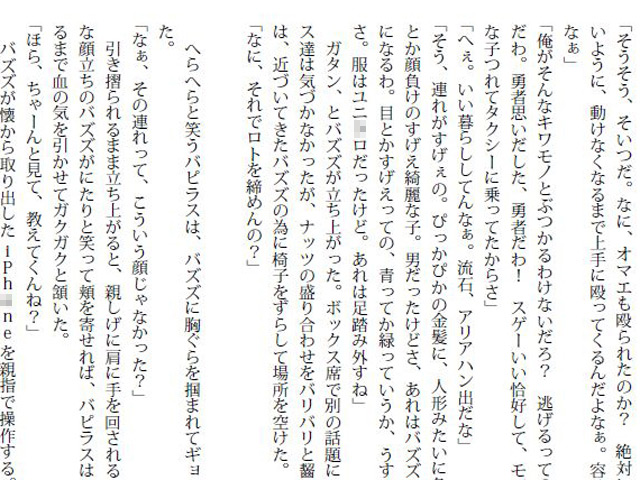 「そうそう、そいつだ。なに、オマエも殴られたのか？　絶対
いように、動けなくなるまで上手に殴ってくるんだよなぁ。容
なぁ」
「俺がそんなキワモノとぶつかるわけないだろ？　逃げるって
だわ。勇者思いだした、勇者だわ！　スゲーいい恰好して、モ
な子つれてタクシーに乗ってたからさ」
「へぇ。いい暮らししてんなぁ。流石、アリアハン出だな」
「そう、連れがすげぇの。ぴっかぴかの金髪に、人形みたいに
とか顔負けのすげえ綺麗な子。男だったけどさ、あれはバズズ
になるわ。目とかすげえっての、青ってか緑っていうか、うす
さ。服はユニ ロだったけど。あれは足踏み外すね」
ガタン、とバズズが立ち上がった。ボックス席で別の話題に
ス達は気づかなかったが、ナッツの盛り合わせをバリバリと齧
は、近づいてきたバズズの為に椅子をずらして場所を空けた。
「なに、それでロトを締めんの？」
へらへらと笑うパピラスは、バズズに胸ぐらを掴まれてギョ
た。
「なぁ、その連れって、こういう顔じゃなかった？」
引き摺られるまま立ち上がると、親しげに肩に手を回される
な顔立ちのバズズがにたりと笑って頬を寄せれば、パピラスは
るまで血の気を引かせてガクガクと頷いた。
「ほら、ちゃーんと見て、教えてくんね？」
バズズが懐から取り出したiPh neを親指で操作する。